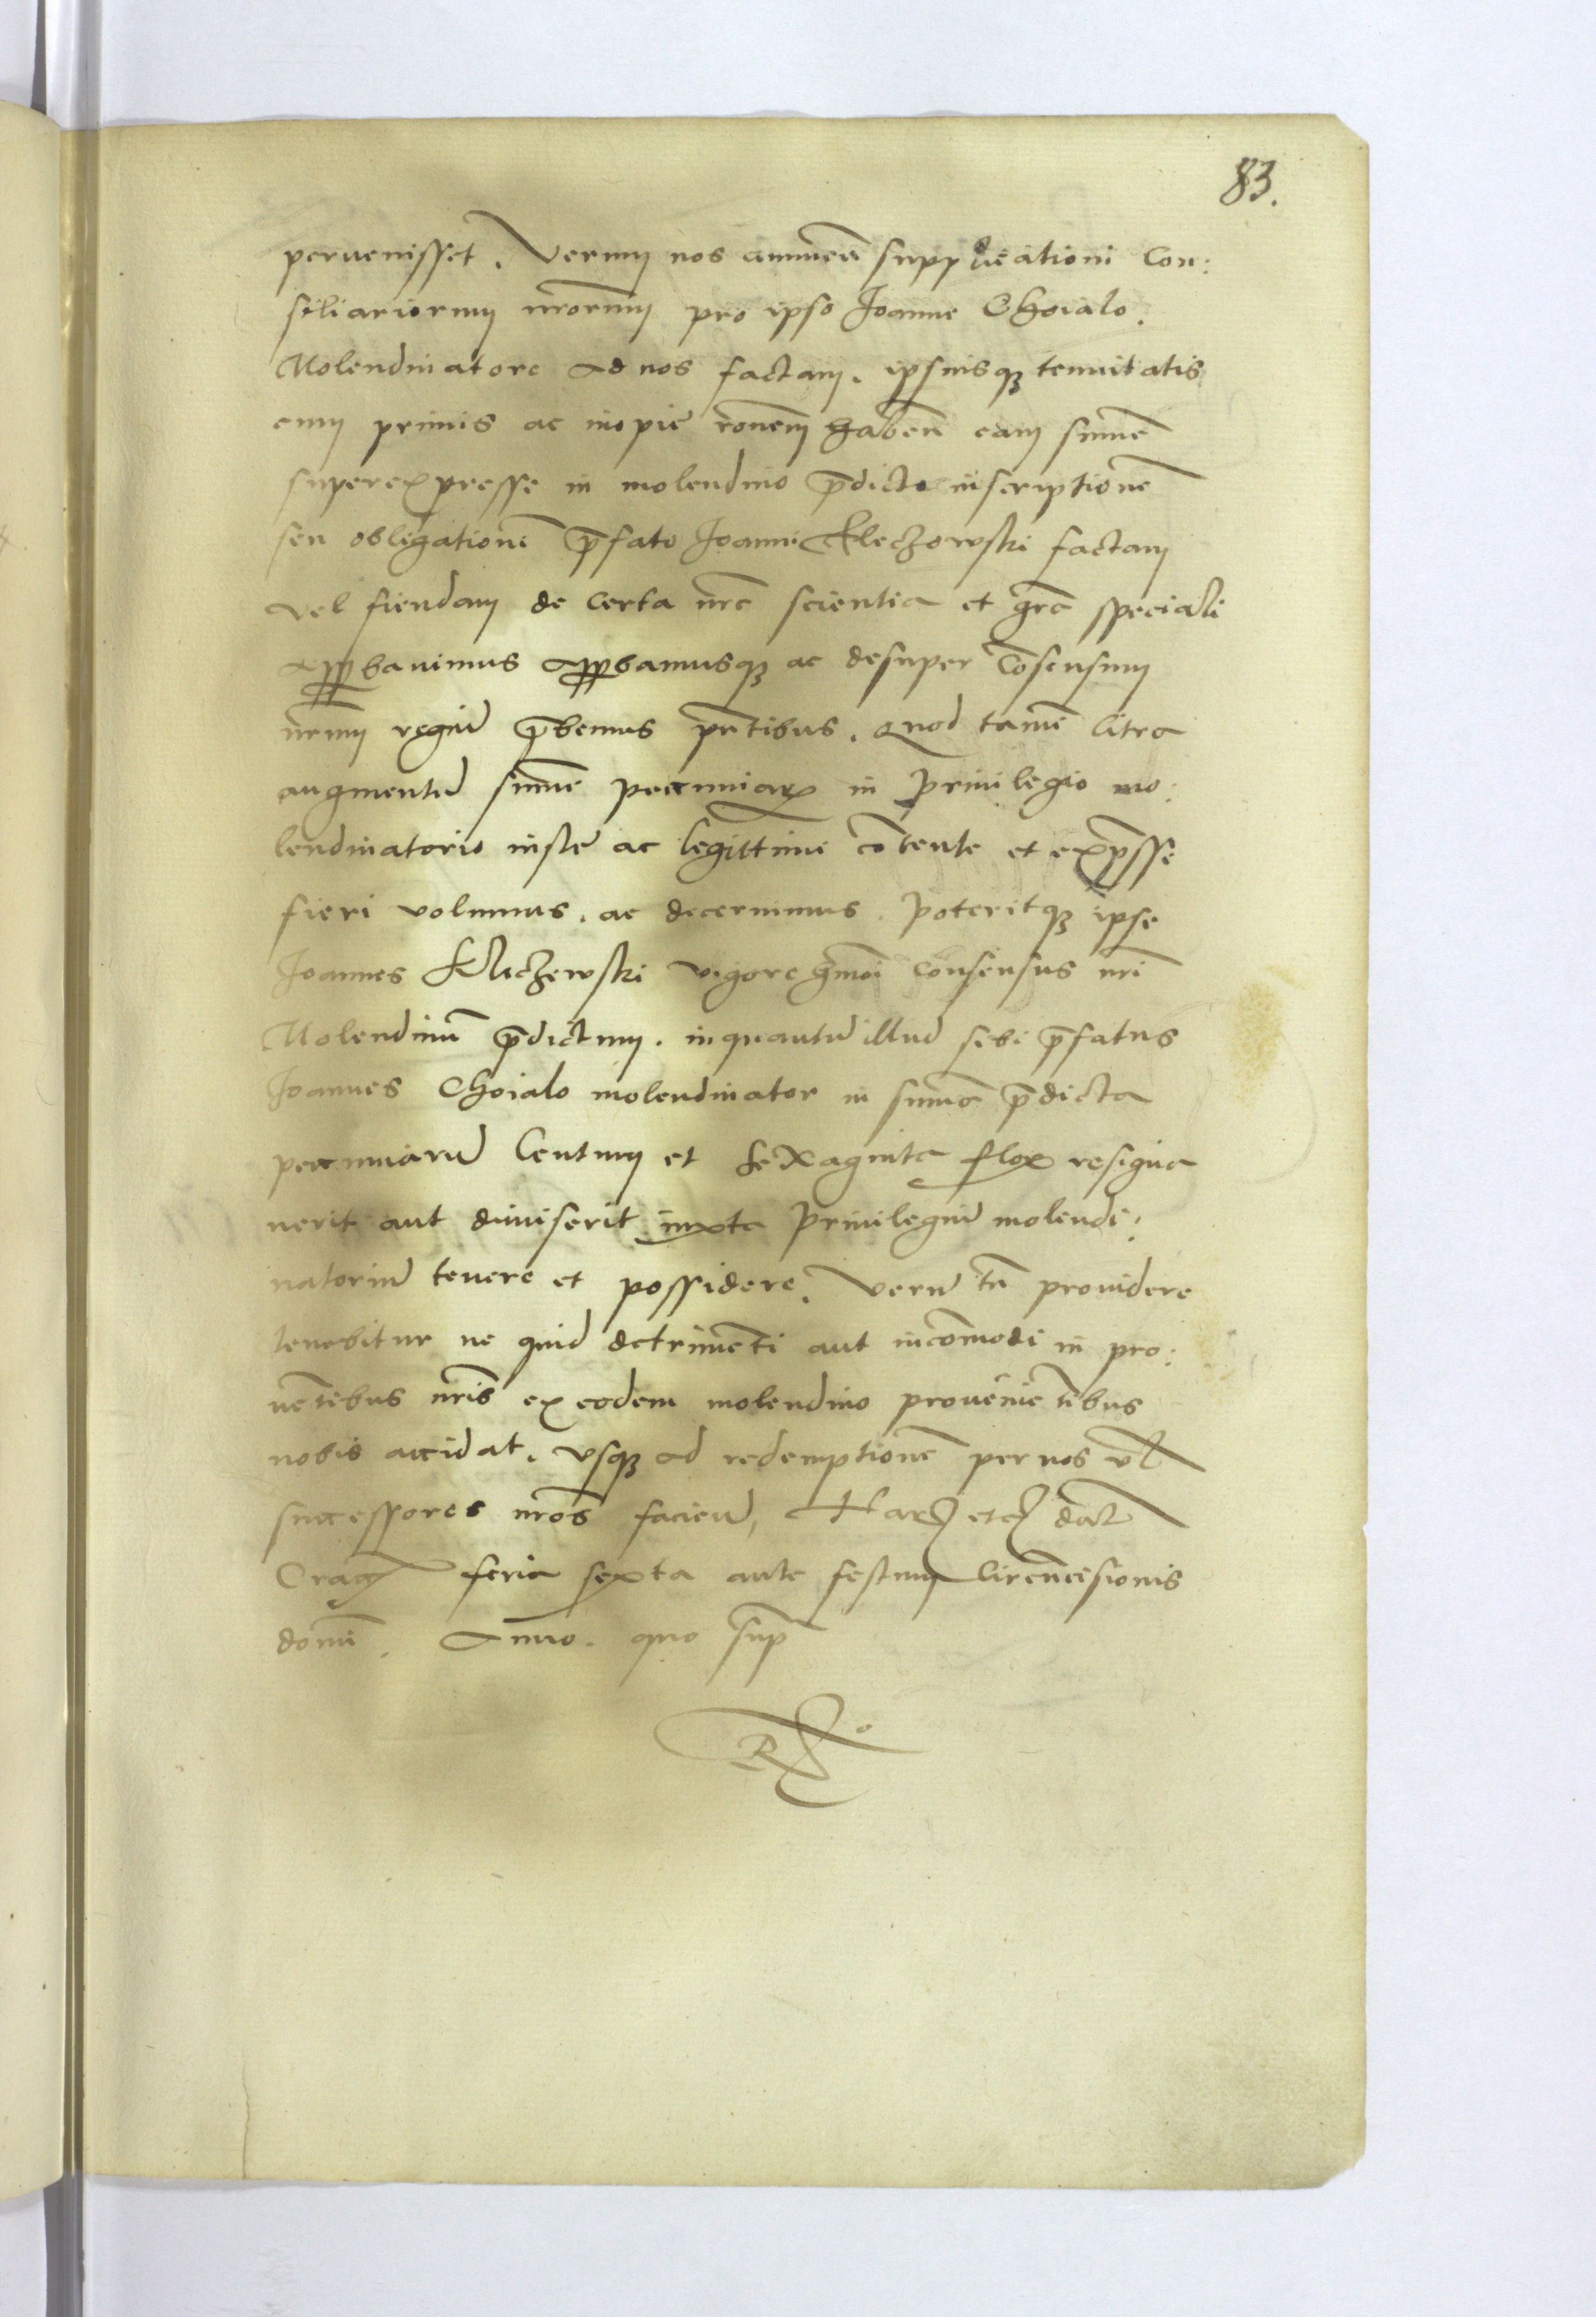 83.
peruenisset. Verum nos annuen̄ supplicationi Con:
siliariorum nr̄orum pro ipso Joanne Choialo.
Molendinatore ad nos factam. ipsiusqꝫ tenuitatis
cum primis ac inopie rōnem haben̄ eam summe
superexpresse in molendino p̄dicto inscriptionē
seu obligationē p̄fato Joanni Kleczowski factam
vel fiendam de certa nr̄a scientia et gr̄a speciali
approbauimus approbamusqꝫ ac desuper Cōsensum
nr̄um regiū p̄bemus p̄ntibus. Quod tamē citra
augmentū summe pecuniarꝝ in Priuilegio mo:
lendinatorio iuste ac legittime cōtente et exp̄sse
fieri volumus. ac decernimus. Poteritqꝫ ipse
Joannes Kliczewski vigore hmōi Consensus nr̄i
Molendinū p̄dictum. inquantū illud sibi p̄fatus
Joannes Choialo molendinator in summa p̄dicta
pecuniarū Centum et sexaginta flor resigna
uerit aut diuiserit iuxta Priuilegiū molendi:
natoriū tenere et possidere. Verū tn̄ prouidere
tenebitur ne quid detrimēti aut incōmodi in pro:
uētibus nr̄is ex eodem molendino proueniētibus
nobis accidat. vsqꝫ ad redemptionē per nos vl̄
successores nr̄os facien̄, Harꝫ etcꝫ dat
Cracꝫ feria sexta ante festum Circūcisionis
domī. Anno. quo sup̄